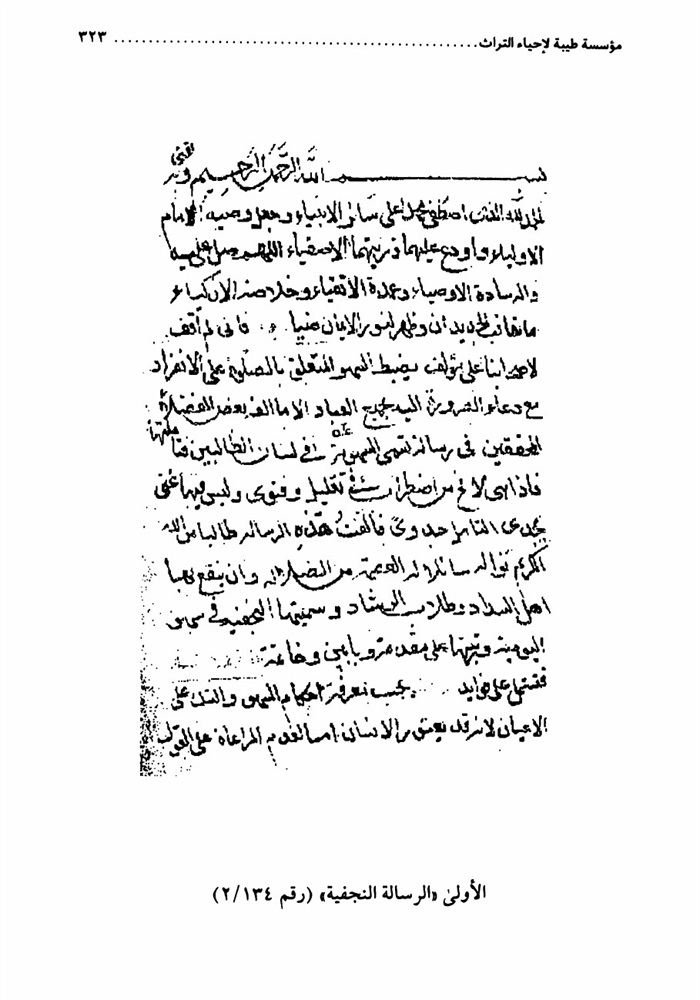 مؤسسة طيبة لإحياء التراث ................................................ ٣٢٣
بسم الله الرحمن الرحيم وبه ثقتي
الحمد لله الذي اصطفى محمدا على سائر الانبياء وجعل وصيه الامام
الاولياء واودع عليهما ذريتهما الاصفياء اللهم صل على
والسادة الاوصياء وعمدة الأتقياء وخلاصة الأزكياء
ما تعاقب الجديدان وظهر لنور الايمان ضياء فاني لم أقف
لاصحابنا على مؤلف يضبط السهو المتعلق بالصلوة على الانفراد
مع دعاء الضرورة اليه لجميع العباد الا ما الفه بعض الفضلاء
المحققين في رسالة تسمى السهوية في لسان الطالبين
فاذا هي لا تخ من اضطراب في تقليل وفتوى وليس فيها غنى
فالفت هذه الرسالة طالبا من الله
الكريم نواله سائلا له العصمة من الضلالة وان ينفع بها
اهل السداد وطلاب الرشاد وسميتها النجفية في سهو
اليومية ورتبتها على مقدمة وبابين وخاتمة
فتشتمل على فوايد يجب معرفة احكام السهو والشك على
الاعيان لانه قد المراعاة على القول
الأولىٰ «الرسالة النجفية» (رقم ٢/١٣٤)